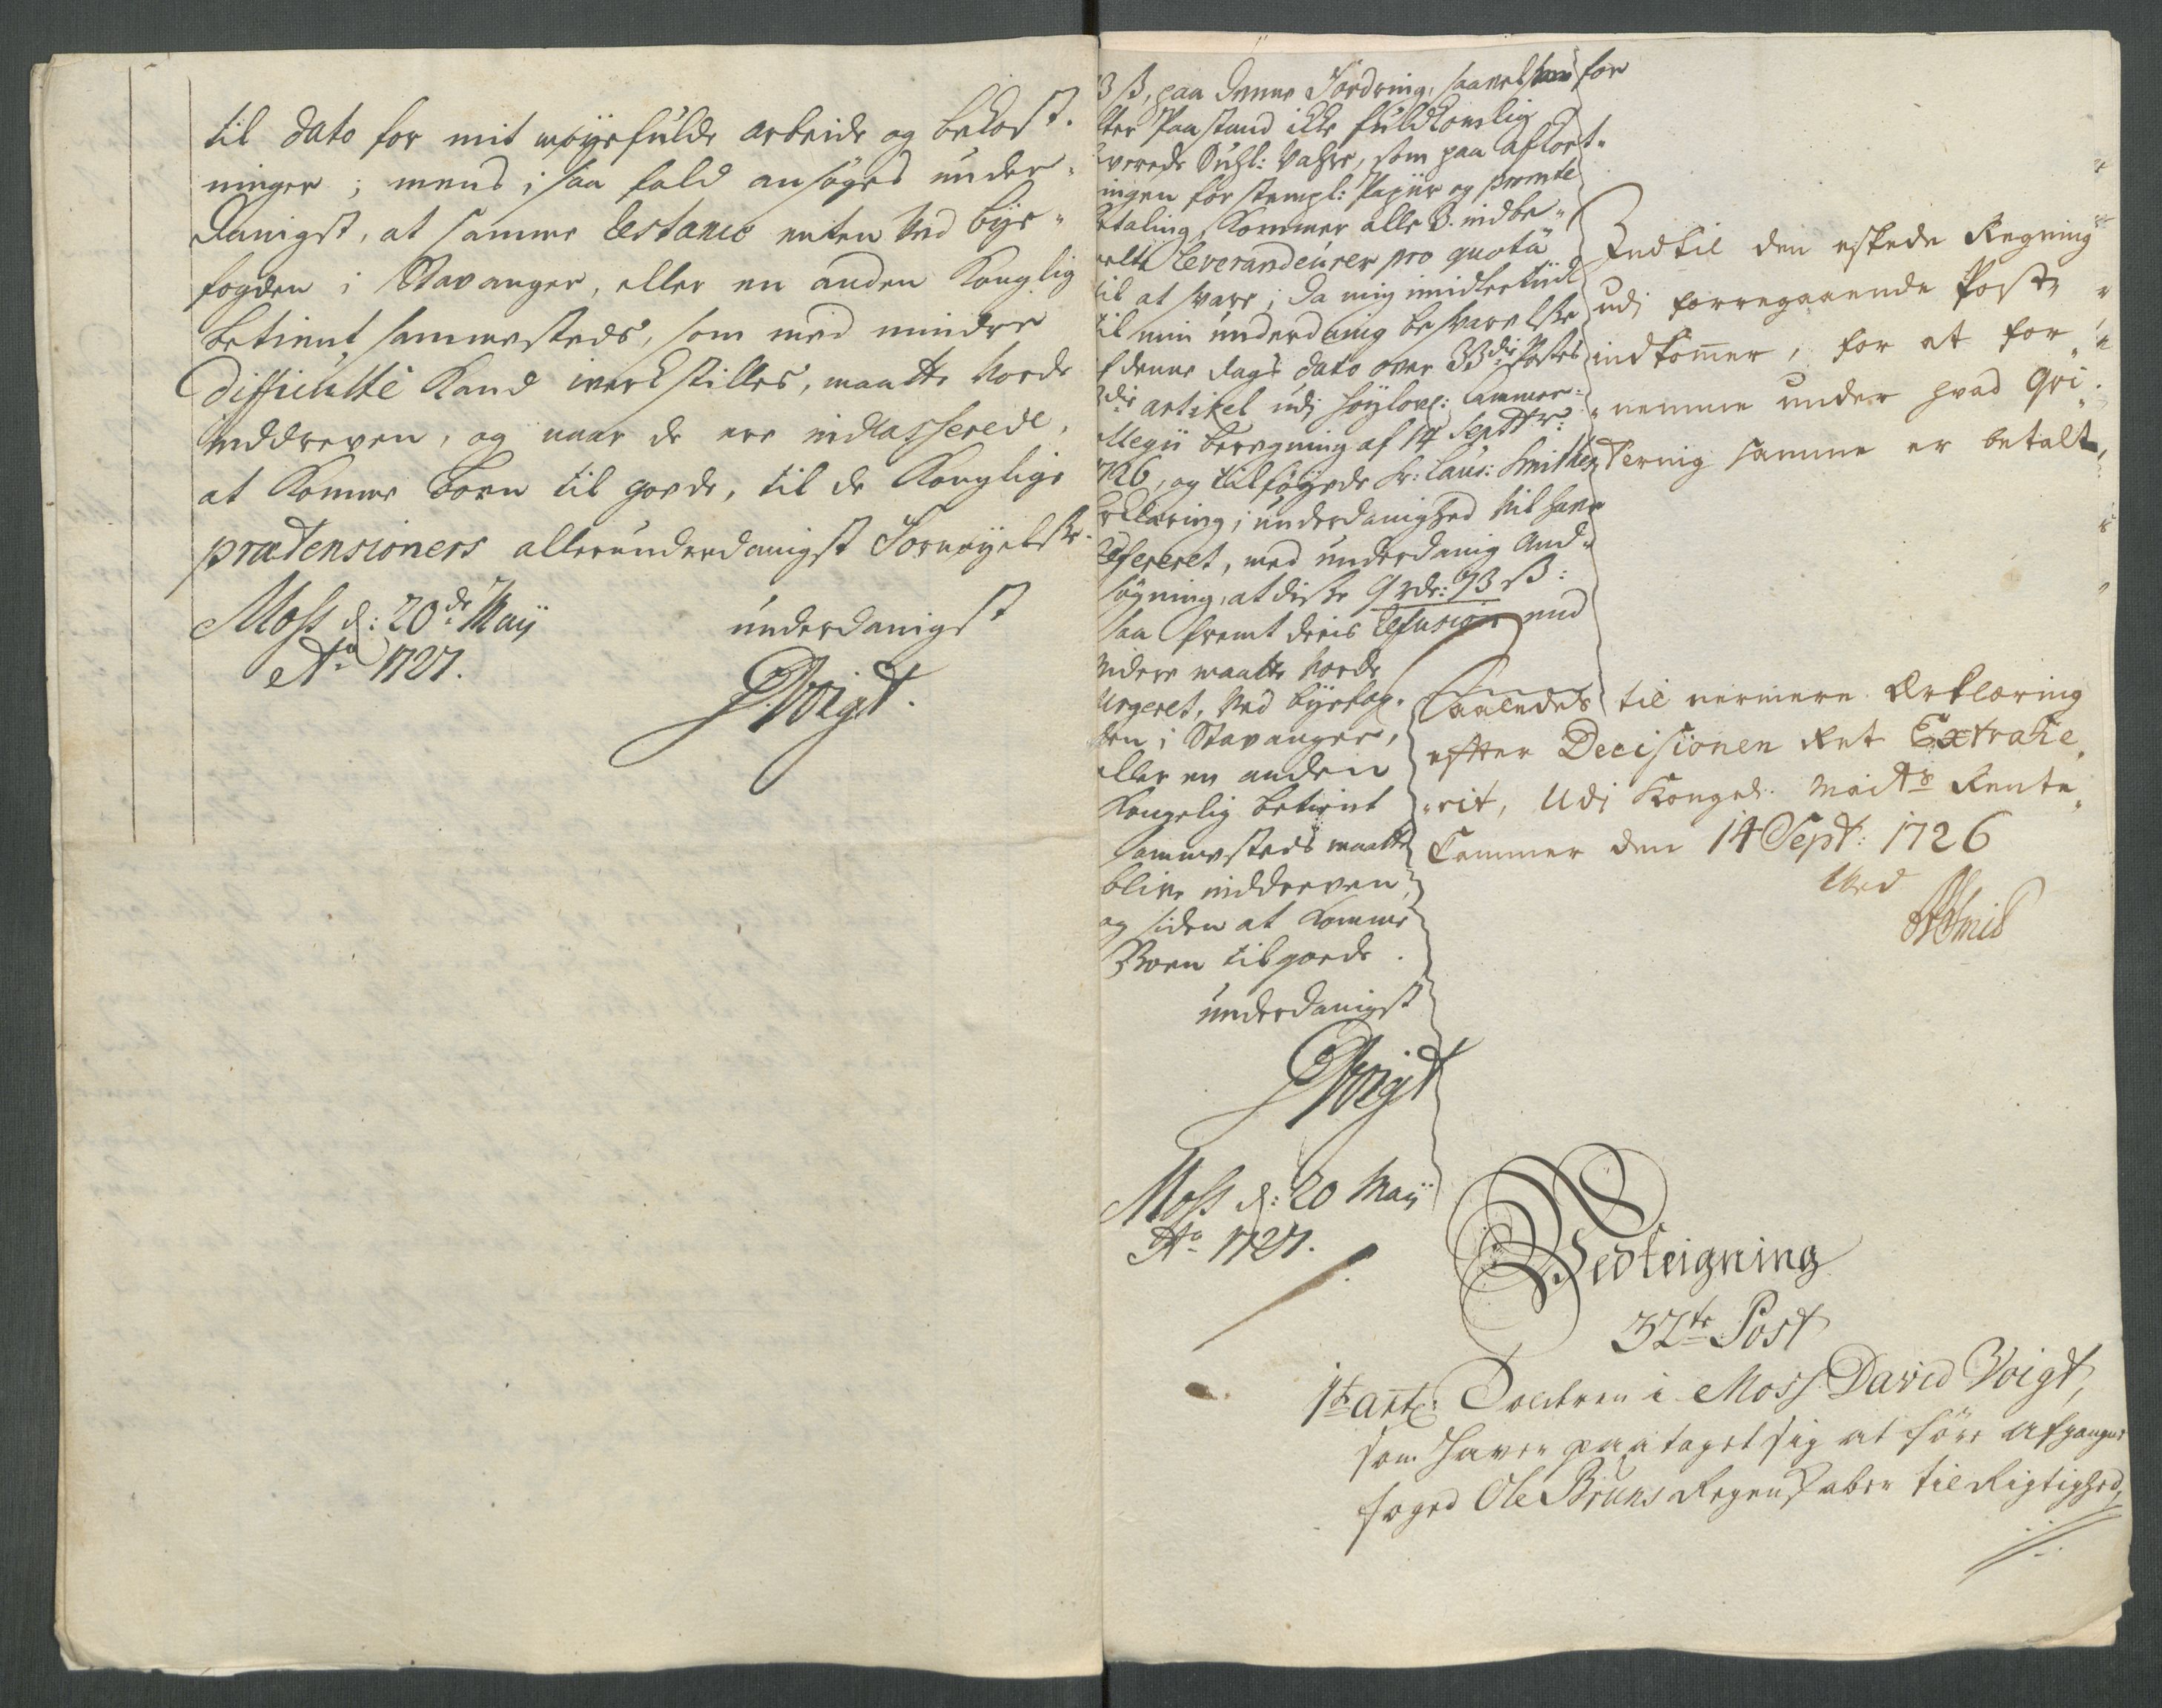 til dato for mit møyefulde arbeide og bekost-
ninger; mens i saa fald ansøges under-
danigst, at samme Restance enten ved bye-
fogden i Stavanger, eller en anden Konglig
betient sammesteds, som med mindre
difficulté kand werkstilles, maatte vorde
inddreven, og naar de ere incasserede,
at komme Boen til goede, til de Konglige
prætensioners allerunderdanigst Fornøyelse.
Moss d: 20de Maij
Ao 1727.
underdanigst
DVoigt.
3 ß, paa denne Fordring, saavelsom for
ter Paastand icke fuldkomlig
verede Vahre, som paa afkort-
ningen for stempl: Papiir og promte
etaling, kommer alle B. indbe-
leverandeurer pro quota
til at svare; da mig imidlertiid
til min underdanig besvarelse
f denne dags dato over 33die Postes
die artikel udj høylovl: Cammer-
llegii beregning af 14 Septbr:
1726, og tilføyede Hr: Laur: Smithes
rklæring i underdanighed vil have
refereret, med underdanig And-
søgning, at disse 9 rdr: 73 ß:
saa fremt deris Refusion med
videre maatte vorde
urgeret, ved byefog-
den i Stavanger,
eller en anden
Kongelig betient
sammesteds maatte
blive inddreven,
og siden at komme
Boen til goede.
underdanigst
DVoigt
Moss d: 20 Maij
Ao 1727.
Indtil den eskede Regning
udj forregaaende Post
indkommer, for at for
nemme under hvad Qvi
tering samme er betalt,
Saaledes til nermere Erklæring
efter Decisionen ret Extrahe
rit, Udi Kongel. Maits Rente
Cammer den 14 Sept: 1726
Ved
Smid
Vedteigning
32te Post
1te Artl: Tolderen i Moss David Voigt,
som haver paataget sig at føre afgangne
foged Ole Bruns Regenskaber til Rigtighed,